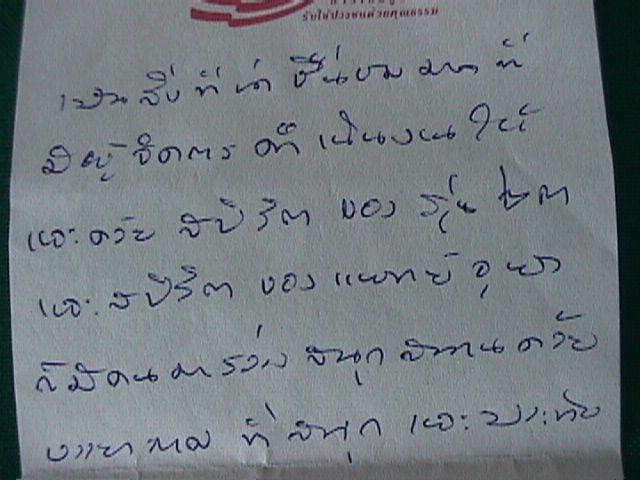 รับใช้ปวงชนด้วยคุณธรรม
เป็นสิ่งที่น่าชื่นชมมากที่
มีผู้จัดการดำเนินงานให้
และด้วยสปิริตของรุ่น ๒๓
และสปิริตของแพทย์จุฬา
ก็มีคนมาร่วมสนุกสนานด้วย
บรรยากาศที่สนุกและประทับ